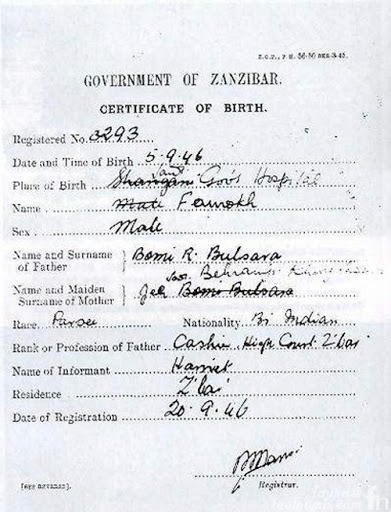 GOVERNMENT OF ZANZIBAR.
CERTIFICATE OF BIRTH.
Registered No. 3293
Date and Time of Birth 5.9.46
Place of Birth Shangani Gov's Hospital
Name Male Farrokh
Sex Male
Name and Surname of Father } Bomi R. Bulsara
Name and Maiden Surname of Mother } Jer Bomi Bulsara
Race Parsee Nationality Br Indian
Rank or Profession of Father Cashr. High Court Z'bar
Name of Informant
Residence Z'bar
Date of Registration 20.9.46
Registrar.
[SEE REVERSE].